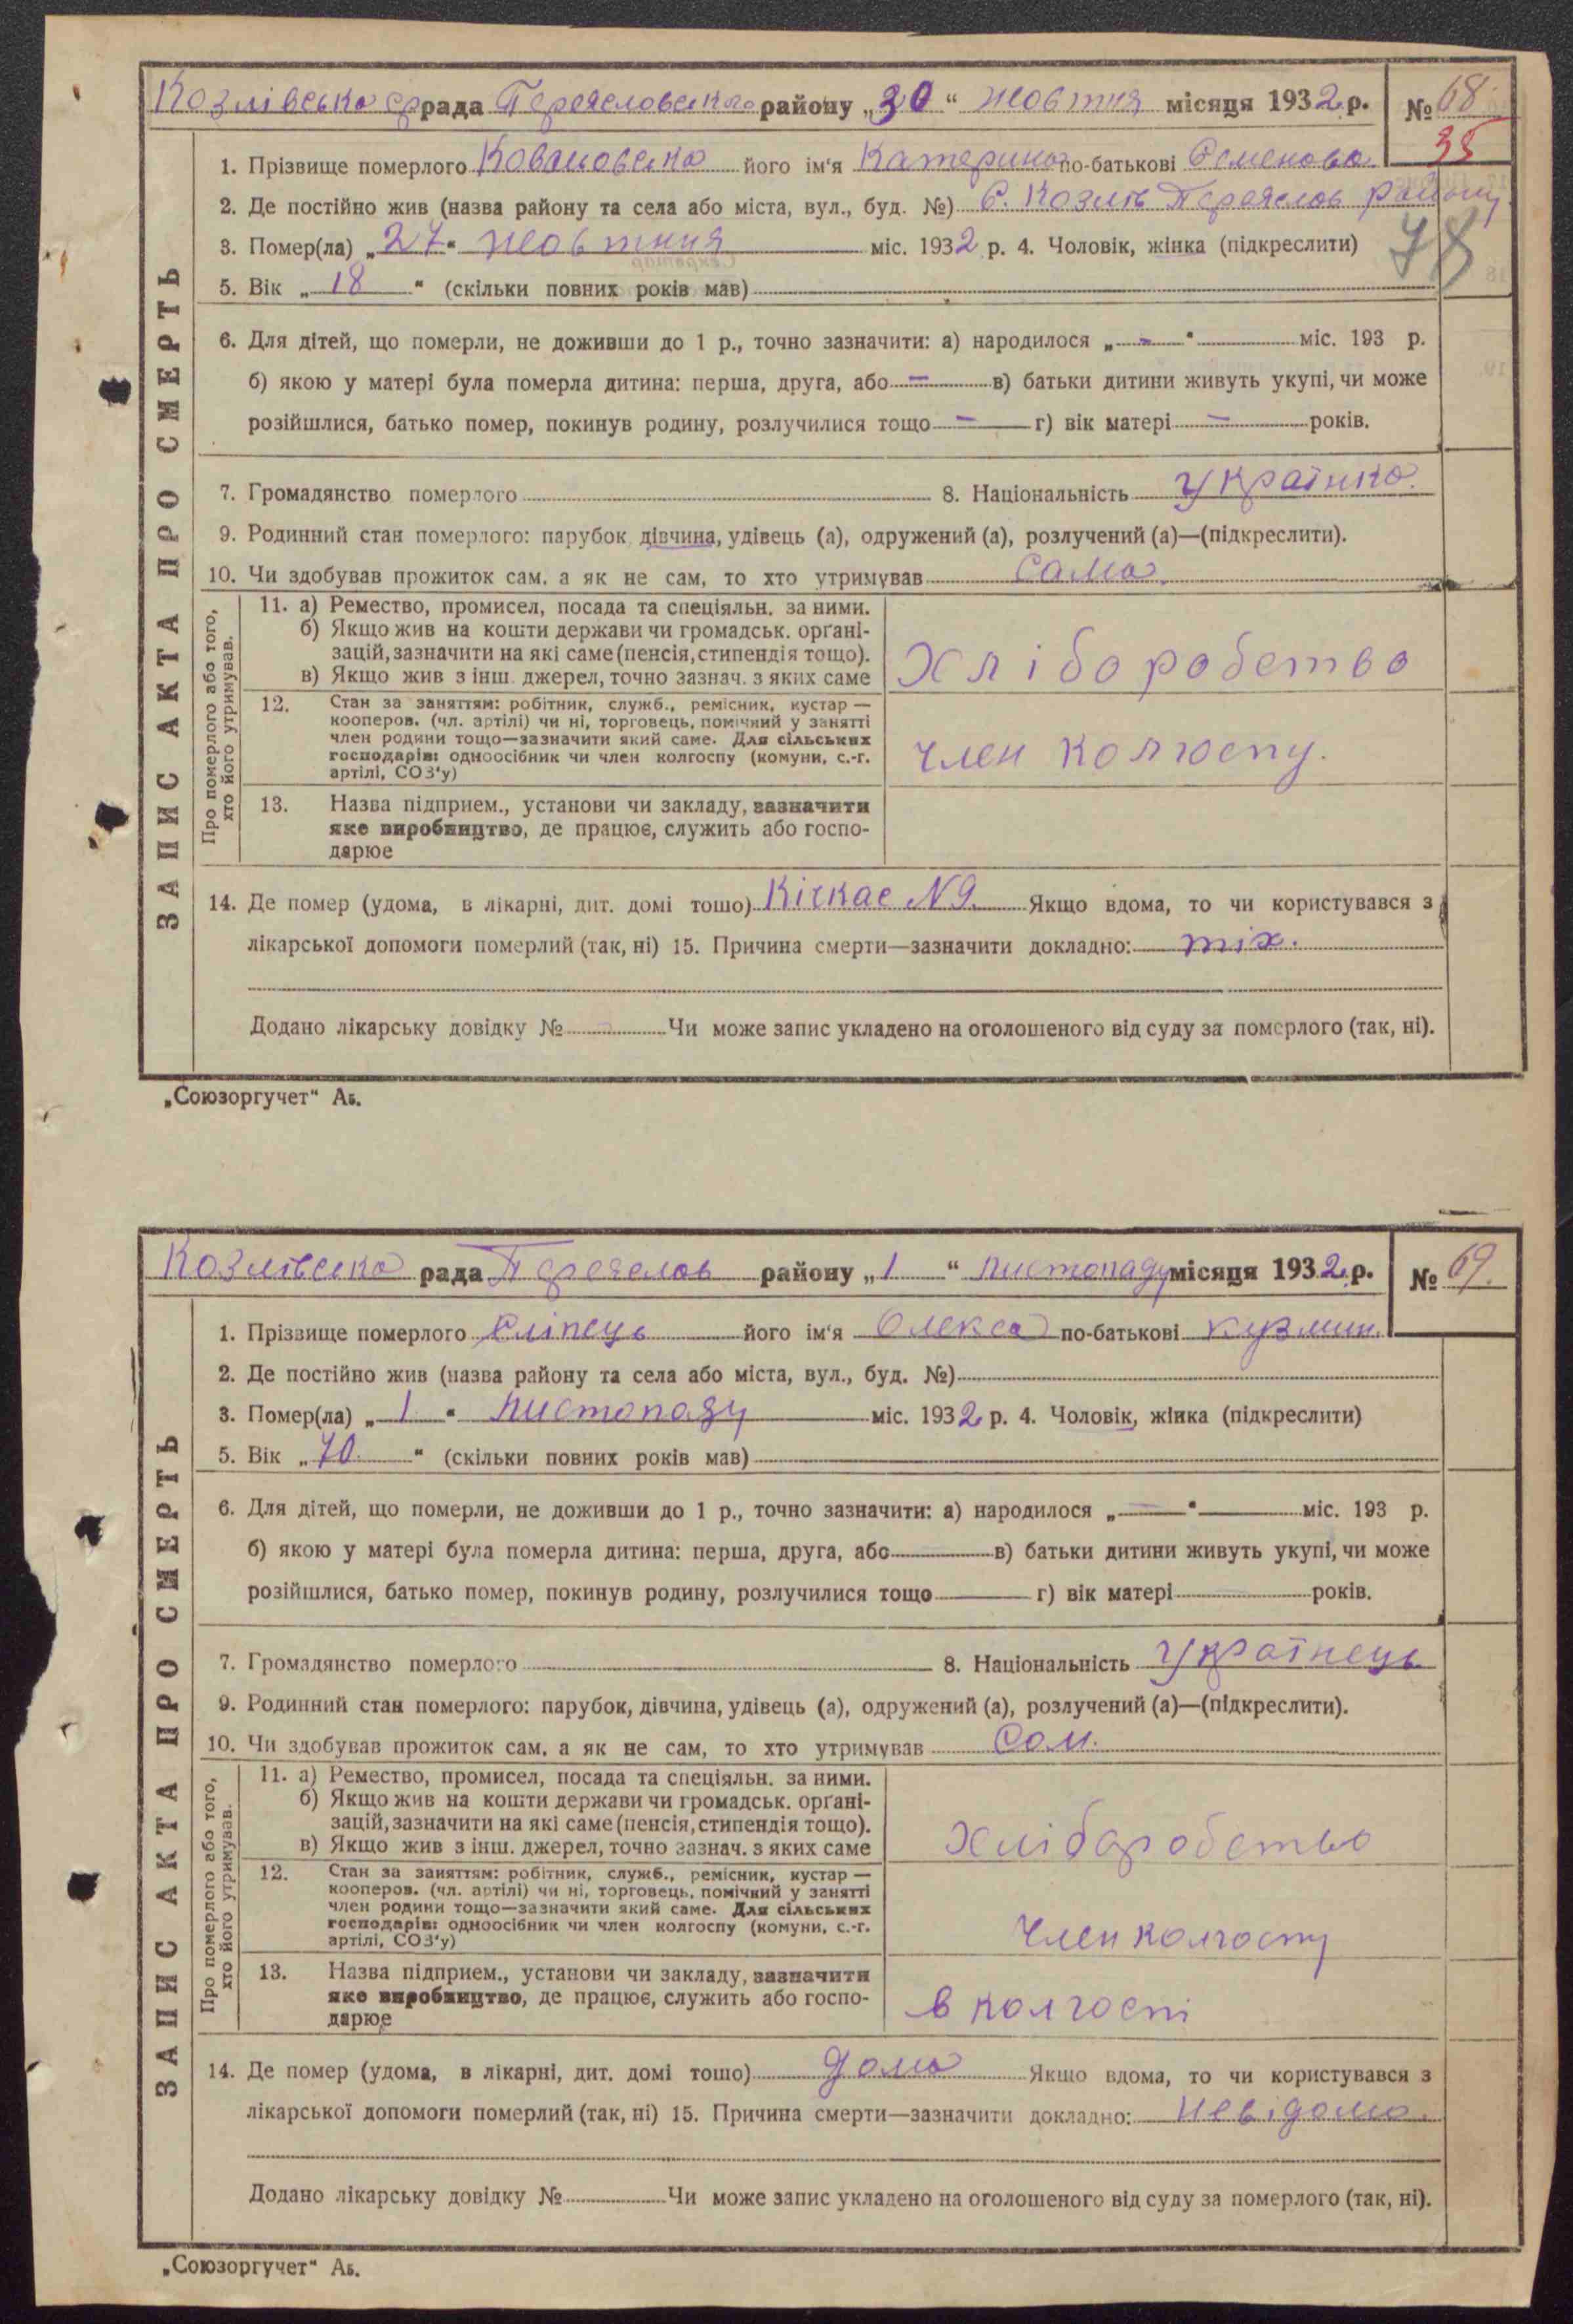 Козлівська срада Переясловського району „30“ жовтня місяця 1932 р. № 68
35
1. Прізвище померлого його ім'я Катерина по-батькові Семенова
2. Де постійно жив (назва району та села або міста, вул., буд. №) С. Козлів Переяслов району
78
3. Помер(ла) „27“ жовтня міс. 1932 р. 4. Чоловік, жінка (підкреслити)
5. Вік „18“ (скільки повних років мав)
6. Для дітей, що померли, не доживши до 1 р., точно зазначити: а) народилося „-“ міс. 193 р.
б) якою у матері була померла дитина: перша, друга, або - в) батьки дитини живуть укупі, чи може
розійшлися, батько помер, покинув родину, розлучилися тощо - г) вік матері - років.
7. Громадянство померлого 8. Національність Українка.
9. Родинний стан померлого: парубок, дівчина, удівець (а), одружений (а), розлучений (а)—(підкреслити).
10. Чи здобував прожиток сам, а як не сам, то хто утримував сама.
ЗАПИС АКТА ПРО СМЕРТЬ
Про померлого або того, хто його утримував.
11. а) Ремество, промисел, посада та спеціяльн. за ними.
б) Якщо жив на кошти держави чи громадськ. орґані-
зацій, зазначити на які саме (пенсія, стипендія тощо).
в) Якщо жив з інш. джерел, точно зазнач. з яких саме
Хліборобство
12. Стан за заняттям: робітник, служб., ремісник, кустар —
кооперов. (чл. артілі) чи ні, торговець, помічний у занятті
член родини тощо—зазначити який саме. Для сільських
господарів: одноосібник чи член колгоспу (комуни, с.-г.
артілі, СОЗ'у)
член колгоспу.
13. Назва підприєм., установи чи закладу, зазначити
яке виробництво, де працює, служить або госпо-
дарює
14. Де помер (удома, в лікарні, дит. домі тощо) Кічкас №9. Якщо вдома, то чи користувався з
лікарської допомоги померлий (так, ні) 15. Причина смерти—зазначити докладно: тіх.
Додано лікарську довідку № Чи може запис укладено на оголошеного від суду за померлого (так, ні).
„Союзоргучет“ Аб.
Козлівська рада Переяслов району „1“ листопаду місяця 1932 р. № 69.
1. Прізвище померлого Сліпець його ім'я Олекса по-батькові Кузмин.
2. Де постійно жив (назва району та села або міста, вул., буд. №)
3. Помер(ла) „1“ листопаду міс. 1932 р. 4. Чоловік, жінка (підкреслити)
5. Вік „70.“ (скільки повних років мав)
6. Для дітей, що померли, не доживши до 1 р., точно зазначити: а) народилося „—“ міс. 193 р.
б) якою у матері була померла дитина: перша, друга, або в) батьки дитини живуть укупі, чи може
розійшлися, батько помер, покинув родину, розлучилися тощо г) вік матері років.
7. Громадянство померлого 8. Національність Українець
9. Родинний стан померлого: парубок, дівчина, удівець (а), одружений (а), розлучений (а)—(підкреслити).
10. Чи здобував прожиток сам, а як не сам, то хто утримував Сам.
ЗАПИС АКТА ПРО СМЕРТЬ
Про померлого або того, хто його утримував.
11. а) Ремество, промисел, посада та спеціяльн. за ними.
б) Якщо жив на кошти держави чи громадськ. орґані-
зацій, зазначити на які саме (пенсія, стипендія тощо).
в) Якщо жив з інш. джерел, точно зазнач. з яких саме
Хліборобство
12. Стан за заняттям: робітник, служб., ремісник, кустар —
кооперов. (чл. артілі) чи ні, торговець, помічний у занятті
член родини тощо—зазначити який саме. Для сільських
господарів: одноосібник чи член колгоспу (комуни, с.-г.
артілі, СОЗ'у)
Член колгоспу
13. Назва підприєм., установи чи закладу, зазначити
яке виробництво, де працює, служить або госпо-
дарює
в колгоспі
14. Де помер (удома, в лікарні, дит. домі тощо) дома Якщо вдома, то чи користувався з
лікарської допомоги померлий (так, ні) 15. Причина смерти—зазначити докладно: Невідома.
Додано лікарську довідку № Чи може запис укладено на оголошеного від суду за померлого (так, ні).
„Союзоргучет“ Аб.